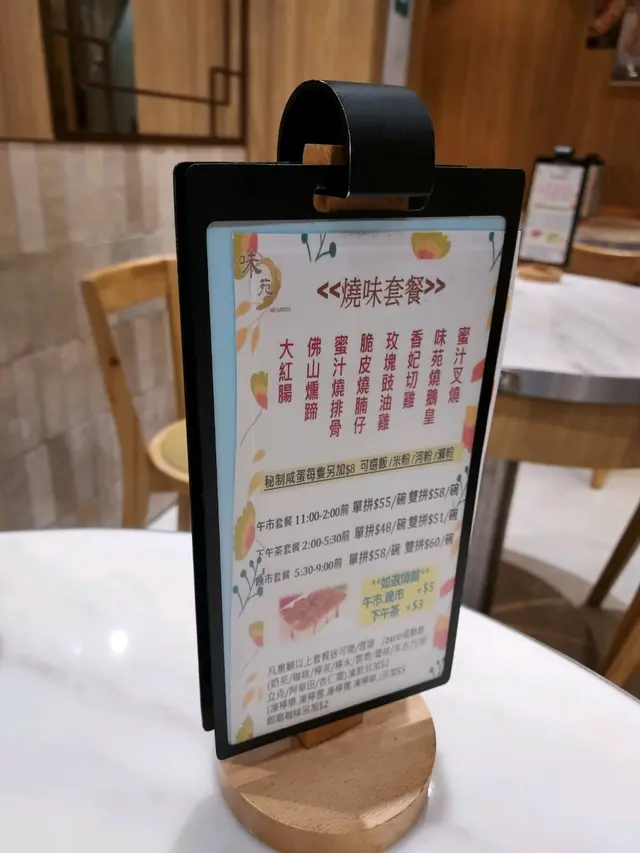 味苑
<<燒味套餐>>
蜜汁叉燒
味苑燒鵝皇
香妃切雞
玫瑰豉油雞
脆皮燒腩仔
蜜汁燒排骨
佛山燻蹄
大紅腸
秘制咸蛋每隻另加$8 可選飯/米粉/河粉/瀨粉
午市套餐 11:00-2:00前 單拼$55/碗 雙拼$58/碗
下午茶套餐 2:00-5:30前 單拼$48/碗 雙拼$51/碗
晚市套餐 5:30-9:00前 單拼$58/碗 雙拼$60/碗
**如選燒鵝**
午市.晚市 +$5
下午茶 +$3
凡惠顧以上套餐送可樂/雪碧
(奶茶/咖啡/檸茶/檸水/
凍飲另加$2
另加$3
即磨咖啡另加$2